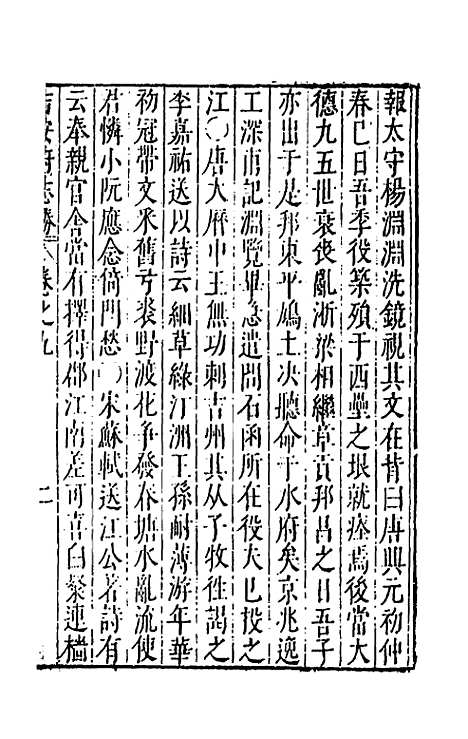 報太守楊淵淵洗鏡視其文在背曰唐興元初仲
春巳日吾季役築殞于西壘之垠就瘞焉後當大
德九五世衰丧亂浙梁相繼章貢邦昌之日吾子
亦出于是邦東平鳩土决聽命于水府矣京兆逸
工深甫記淵覽畢急遣問石函所在役夫已投之
江〇唐大曆中王無功刺吉州其从子牧徃謁之
李嘉祐送以詩云細草綠汀洲王孫耐薄游年華
初冠帶文釆舊弓裘野渡花争發春塘水亂流使
君憐小阮應念倚門愁〇宋蘇軾送江公著詩有
云奉親官舍當有擇得郡江南差可喜白粲連檣
吉安府志勝 卷之九 二